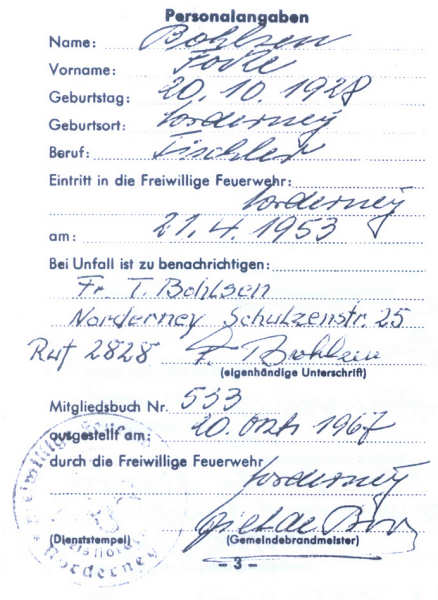 Personalangaben
Name: Bohlsen
Vorname: Focke
Geburtstag: 20.10.1928
Geburtsort: Norderney
Beruf: Tischler
Eintritt in die Freiwillige Feuerwehr:
Norderney
am: 21.4.1953
Bei Unfall ist zu benachrichtigen:
Fr. T. Bohlsen
Norderney Schulzenstr. 25
Ruf 2828 F. Bohlsen
(eigenhändige Unterschrift)
Mitgliedsbuch Nr. 533
ausgestellt am: 20. Okt. 1967
durch die Freiwillige Feuerwehr
Norderney
(Dienststempel) (Gemeindebrandmeister)
- 3 -
Freiwillige Feuerwehr
Norderney